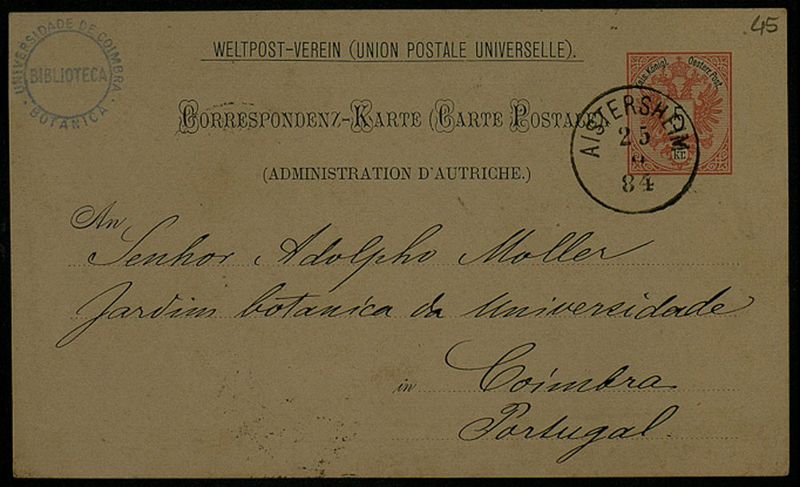 45
UNIVERSIDADE DE COIMBRA
BIBLIOTECA
BOTANICA
WELTPOST-VEREIN (UNION POSTALE UNIVERSELLE).
Kais. Königl. Oesterr. Post.
5
KR.
CORRESPONDENZ-KARTE (CARTE POSTALE)
AISTERSHEIM
25
84
(ADMINISTRATION D'AUTRICHE.)
An
Senhor Adolpho Moller
Jardim botanica da Universidade
in Coimbra
Portugal.